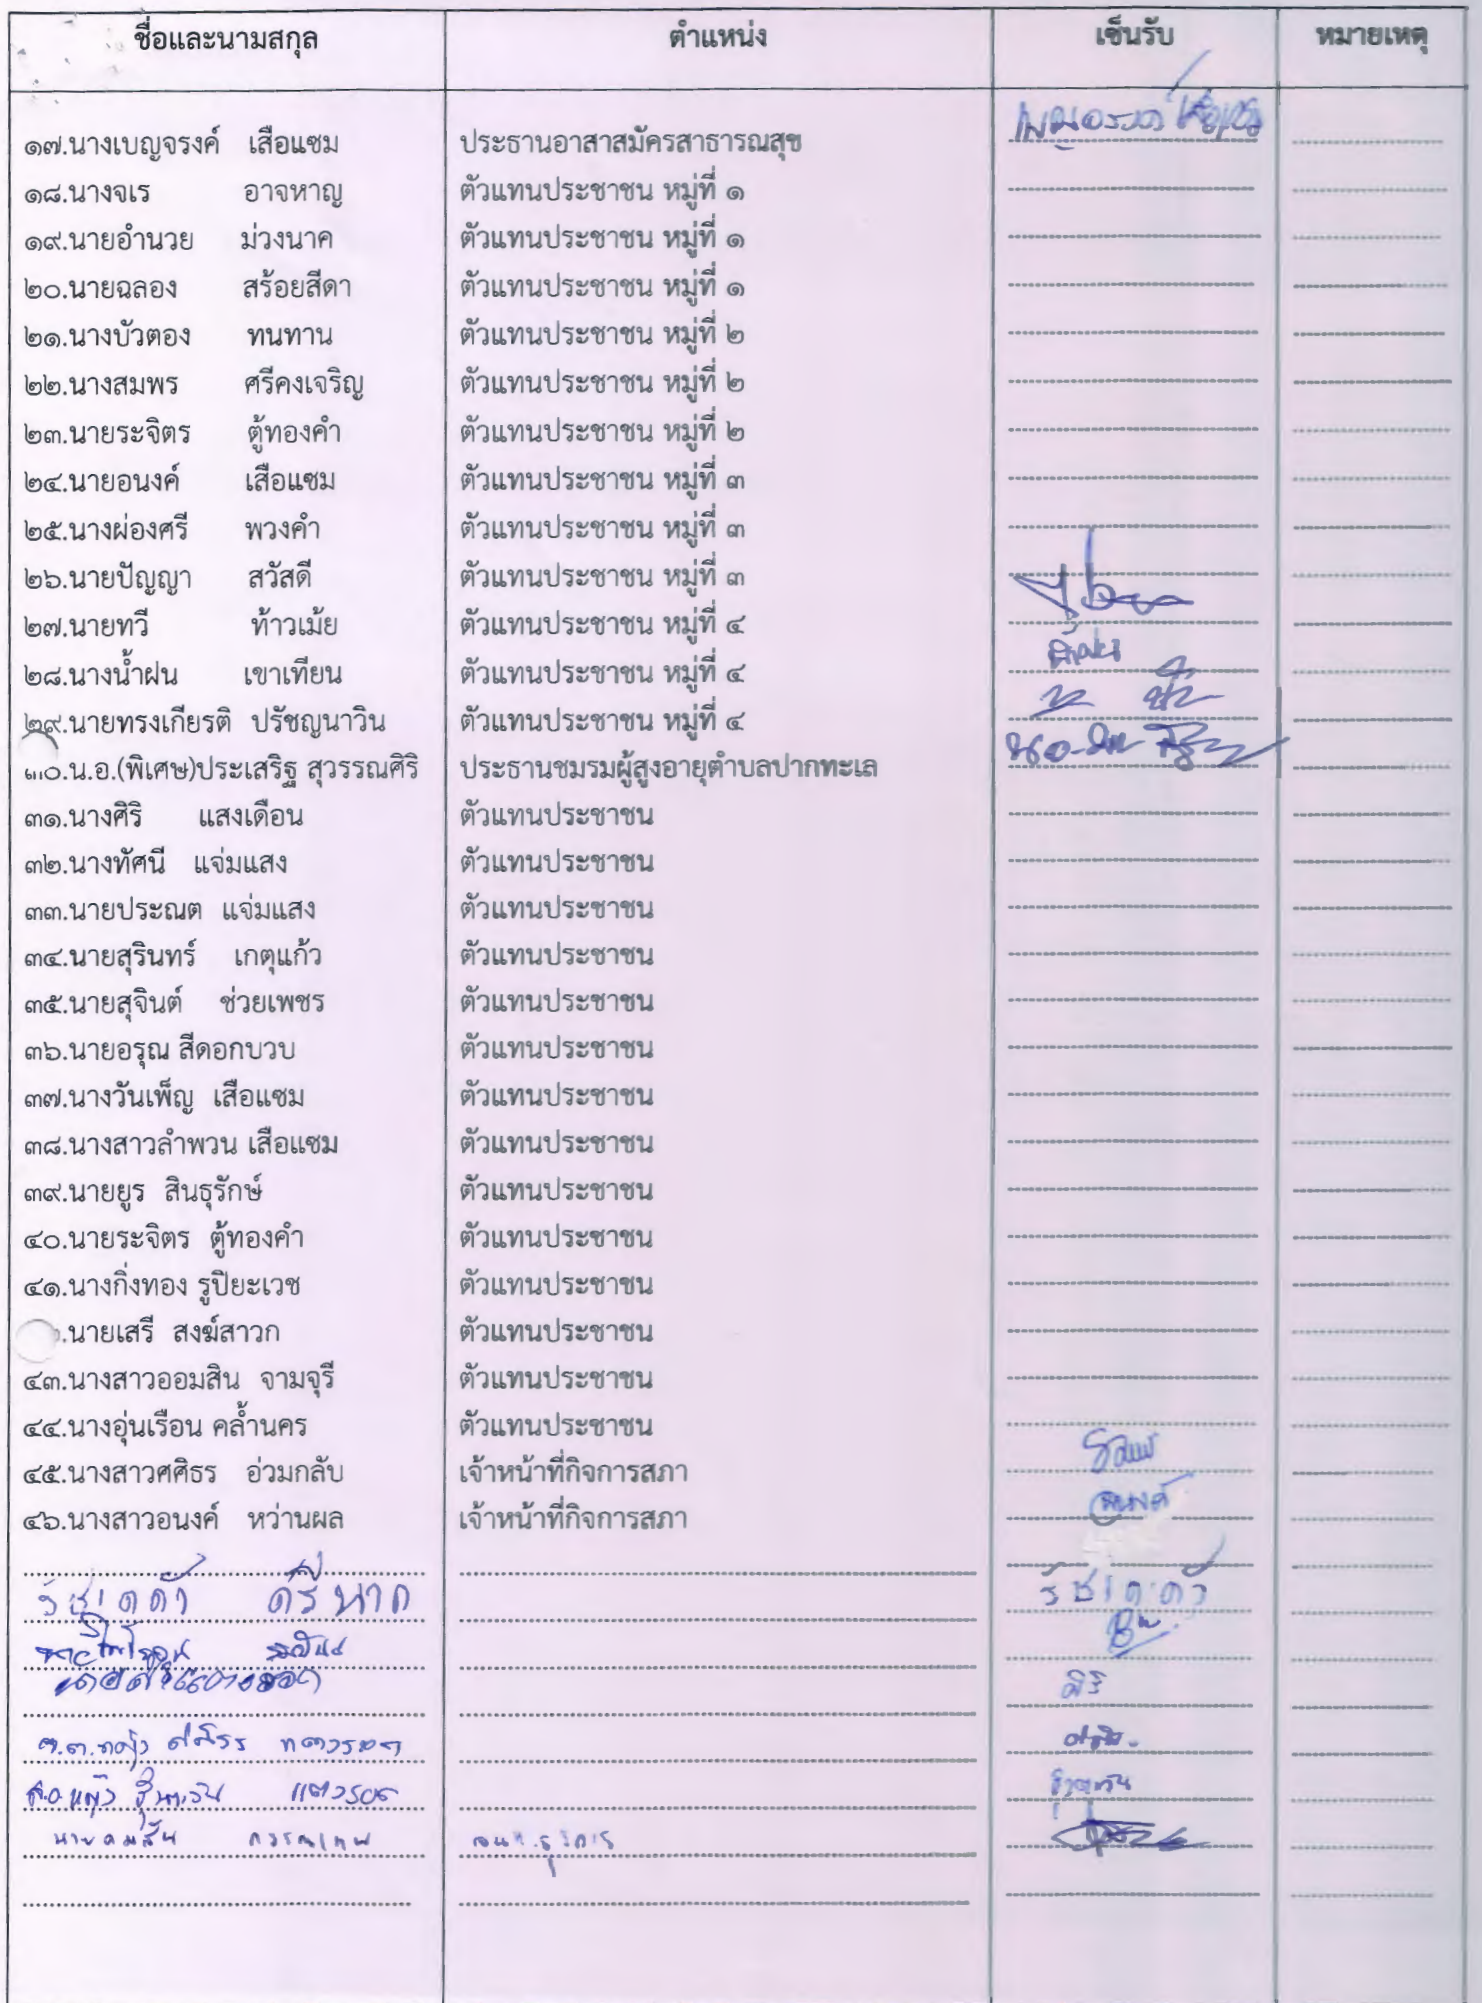 ชื่อและนามสกุล ตำแหน่ง เซ็นรับ หมายเหตุ
๑๗.นางเบญจรงค์ เสือแซม ประธานอาสาสมัครสาธารณสุข เบญจรงค์ เสือแซม
๑๘.นางจเร อาจหาญ ตัวแทนประชาชน หมู่ที่ ๑
๑๙.นายอำนวย ม่วงนาค ตัวแทนประชาชน หมู่ที่ ๑
๒๐.นายฉลอง สร้อยสีดา ตัวแทนประชาชน หมู่ที่ ๑
๒๑.นางบัวตอง ทนทาน ตัวแทนประชาชน หมู่ที่ ๒
๒๒.นางสมพร ศรีคงเจริญ ตัวแทนประชาชน หมู่ที่ ๒
๒๓.นายระจิตร ตู้ทองคำ ตัวแทนประชาชน หมู่ที่ ๒
๒๔.นายอนงค์ เสือแซม ตัวแทนประชาชน หมู่ที่ ๓
๒๕.นางผ่องศรี พวงคำ ตัวแทนประชาชน หมู่ที่ ๓
๒๖.นายปัญญา สวัสดี ตัวแทนประชาชน หมู่ที่ ๓
๒๗.นายทวี ท้าวเม้ย ตัวแทนประชาชน หมู่ที่ ๔
๒๘.นางน้ำฝน เขาเทียน ตัวแทนประชาชน หมู่ที่ ๔ น้ำฝน
๒๙.นายทรงเกียรติ ปรัชญนาวิน ตัวแทนประชาชน หมู่ที่ ๔
๓๐.น.อ.(พิเศษ)ประเสริฐ สุวรรณศิริ ประธานชมรมผู้สูงอายุตำบลปากทะเล
๓๑.นางศิริ แสงเดือน ตัวแทนประชาชน
๓๒.นางทัศนี แจ่มแสง ตัวแทนประชาชน
๓๓.นายประณต แจ่มแสง ตัวแทนประชาชน
๓๔.นายสุรินทร์ เกตุแก้ว ตัวแทนประชาชน
๓๕.นายสุจินต์ ช่วยเพชร ตัวแทนประชาชน
๓๖.นายอรุณ สีดอกบวบ ตัวแทนประชาชน
๓๗.นางวันเพ็ญ เสือแซม ตัวแทนประชาชน
๓๘.นางสาวลำพวน เสือแซม ตัวแทนประชาชน
๓๙.นายยูร สินธุรักษ์ ตัวแทนประชาชน
๔๐.นายระจิตร ตู้ทองคำ ตัวแทนประชาชน
๔๑.นางกิ่งทอง รูปิยะเวช ตัวแทนประชาชน
.นายเสรี สงฆ์สาวก ตัวแทนประชาชน
๔๓.นางสาวออมสิน จามจุรี ตัวแทนประชาชน
๔๔.นางอุ่นเรือน คล้ำนคร ตัวแทนประชาชน
๔๕.นางสาวศศิธร อ่วมกลับ เจ้าหน้าที่กิจการสภา
๔๖.นางสาวอนงค์ หว่านผล เจ้าหน้าที่กิจการสภา อนงค์
ศิริ
นายคมสัน จนท.ธุรการ